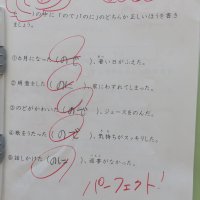 の中に「ので」「のに」のどちらか正しいほうを書き
ましょう。
①6月になった(ので)、暑い日がふえた。
②用意をした(のに)、家にわすれてしまった。
③のどがかわいた(ので)、ジュースをのんだ。
④歌をうたった(ので)、気持ちがスッキリした。
⑤話しかけた(のに)、返事がなかった。
パーフェクト!